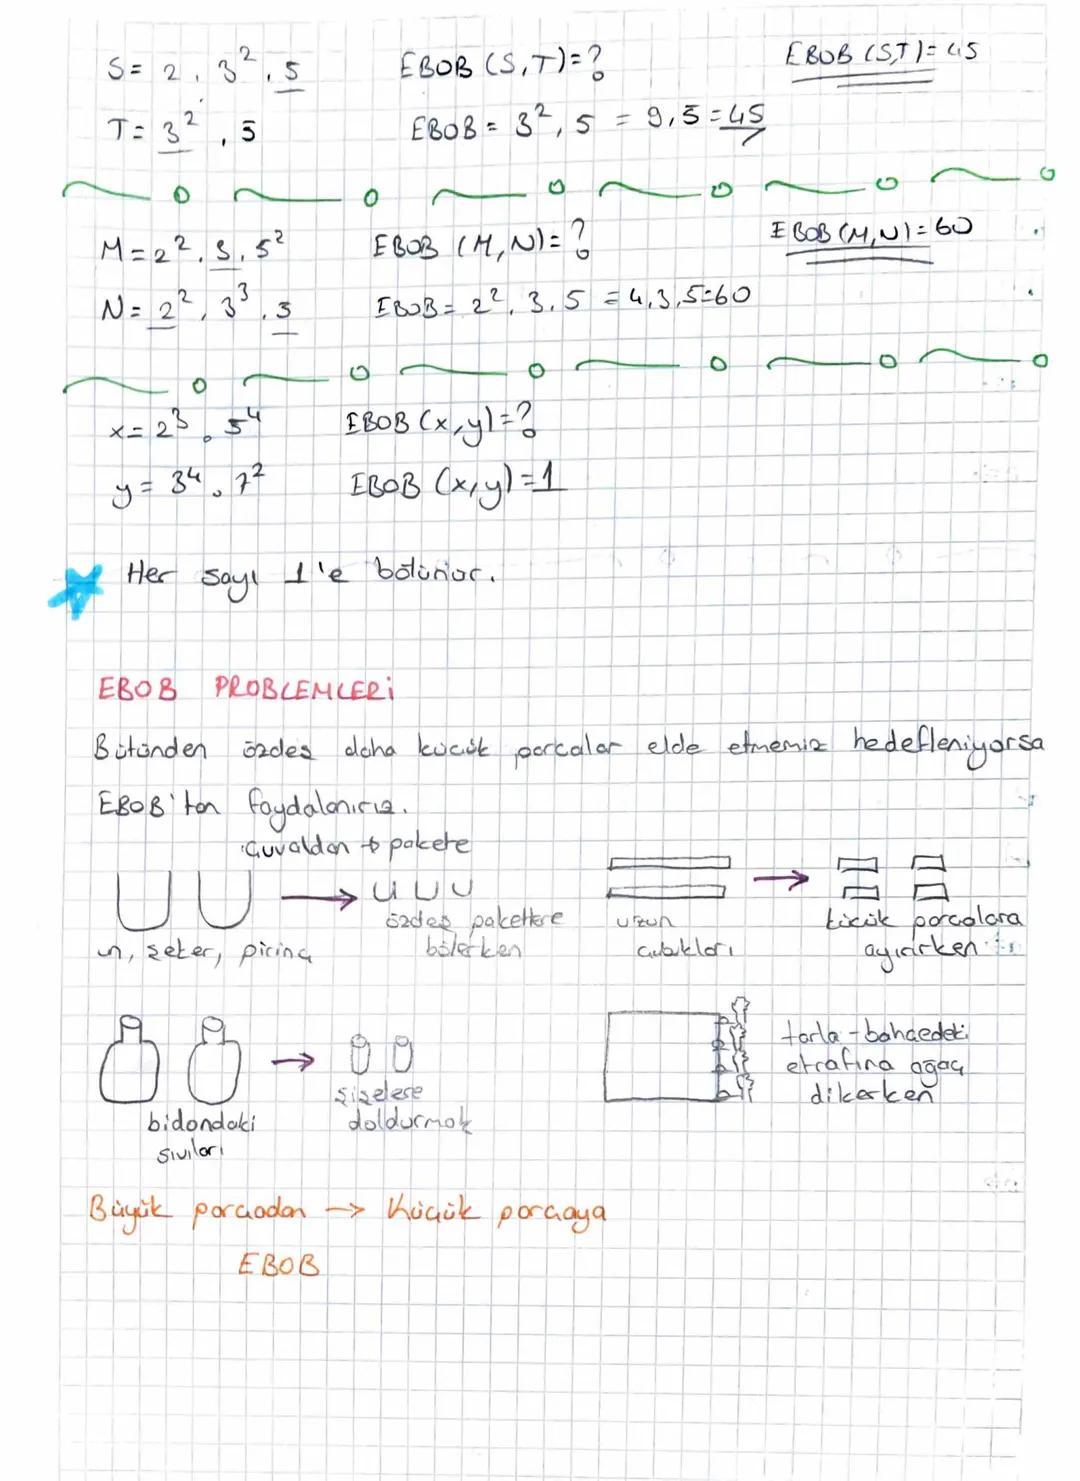 S = 2 . 3² . 5   EBOB (S,T) = ?   EBOB (S,T) = 45
T = 3² . 5   EBOB = 3² . 5 = 9 . 5 = 45
M = 2² . 3 . 5²   EBOB (M,N) = ?   EBOB (M,N) = 60
N = 2² . 3³ . 5   EBOB = 2² . 3 . 5 = 4 . 3 . 5 = 60
x = 2³ . 5⁴   EBOB (x,y) = ?
y = 3⁴ . 7²   EBOB (x,y) = 1
Her sayı 1'e bölünür.
EBOB PROBLEMLERİ
Bütünden özdeş daha küçük parçalar elde etmemiz hedefleniyorsa
EBOB'tan faydalanırız.
Çuvaldan → pakete
un, şeker, pirinç
özdeş paketlere
bölerken
uzun
çubukları
küçük parçalara
ayırırken
bidondaki
sıvıları
şişelere
doldurmak
tarla - bahçedeki
etrafına ağaç
dikerken
Büyük parçadan → Küçük parçaya
EBOB